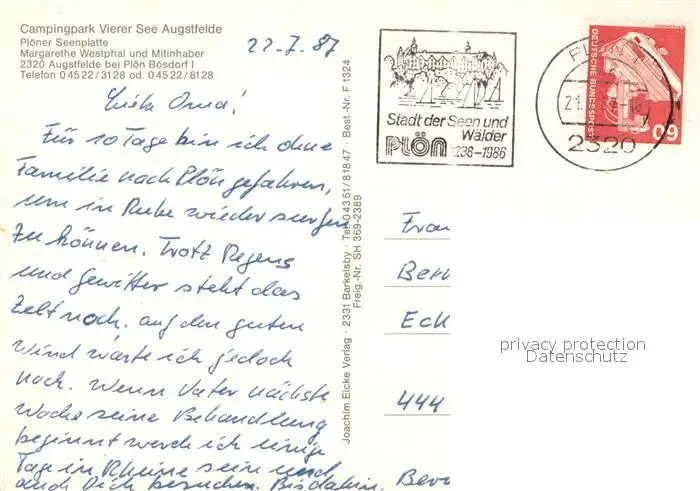 Campingpark Vierer See Augstfelde
Plöner Seenplatte
Margarethe Westphal und Mitinhaber
2320 Augstfelde bei Plön Bösdorf I
Telefon 04522/3128 od. 04522/8128
22.7.87
Liebe Oma!
Für 10 Tage bin ich ohne
Familie nach Plön gefahren,
um in Ruhe wieder surfen
zu können. Trotz Regens
und Gewitter steht das
Zelt noch. Auf den guten
Wind warte ich jedoch
noch. Wenn Vater nächste
Woche seine Behandlung
beginnt werde ich einige
Tage in Rheine sein und
auch Dich besuchen. Bis dahin,
Joachim Eicke Verlag · 2331 Barkelsby · Tel. 04351/81847 · Best.-Nr. F 1324
Freig.-Nr. SH 369-2389
Stadt der Seen und
Wälder
PLÖN 1236-1986
PLÖN
21.
2320
DEUTSCHE BUNDESPOST
60
Frau
Bern
Eck
444
privacy protection
Datenschutz